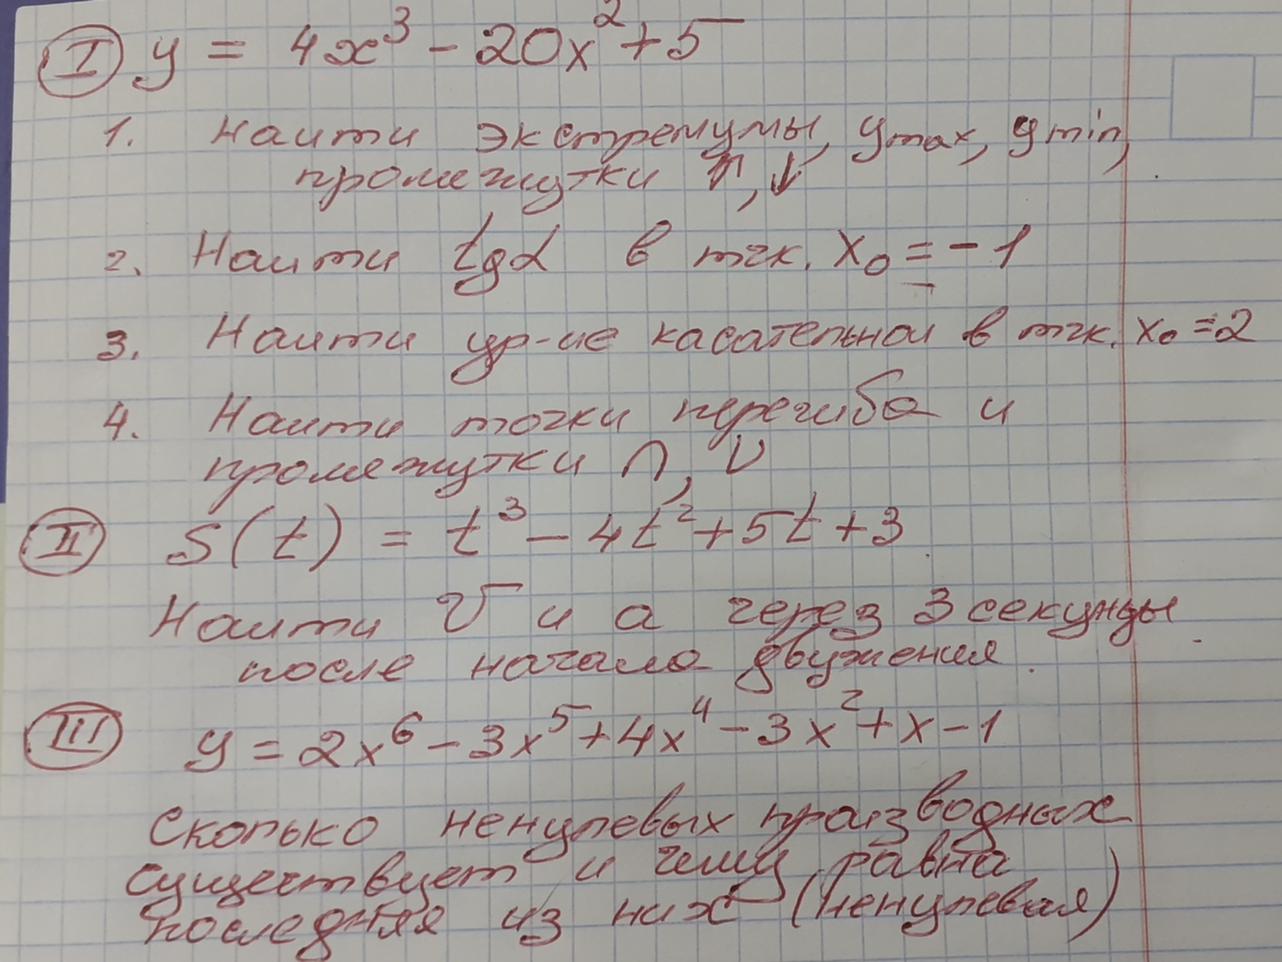 I y = 4x³ - 20x² + 5
1. Найти экстремумы, y max, y min,
промежутки ↑, ↓
2. Найти tgα в тчк. x₀ = -1
3. Найти ур-ие касательной в тчк. x₀ = 2
4. Найти точки перегиба и
промежутки ∩, ∪
II S(t) = t³ - 4t² + 5t + 3
Найти v и a через 3 секунды
после начала движения
III y = 2x⁶ - 3x⁵ + 4x⁴ - 3x² + x - 1
Сколько ненулевых производных
существует и чему равна
последняя из них (ненулевая)